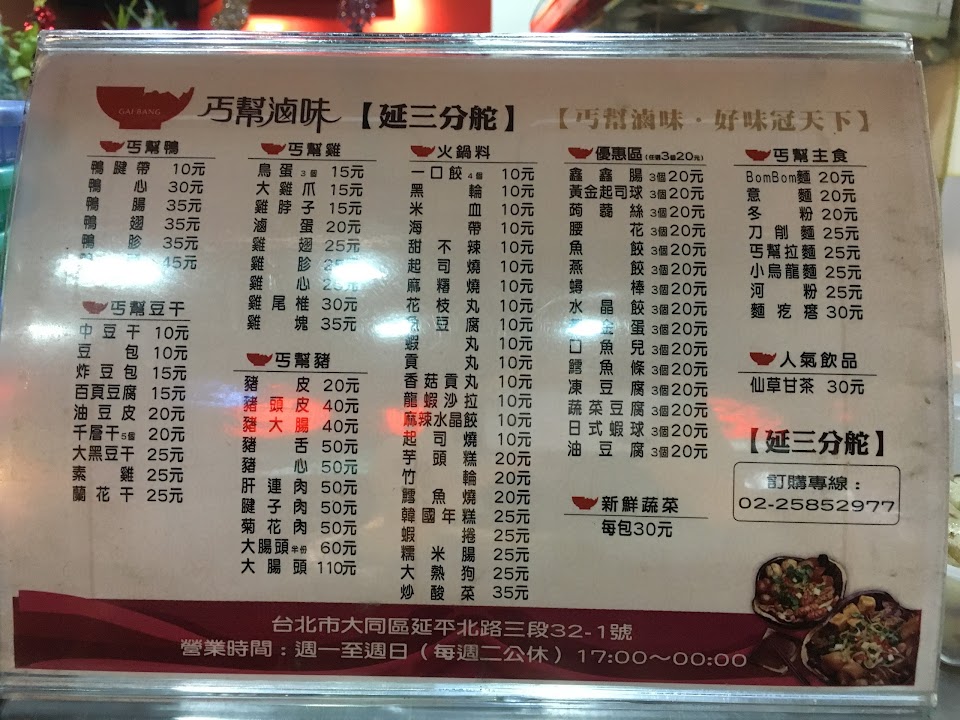 GAI BANG
丐幫滷味【延三分舵】
【丐幫滷味・好味冠天下】
丐幫鴨
鴨腱帶 10元
鴨心 30元
鴨腸 35元
鴨翅 35元
鴨胗 35元
45元
丐幫豆干
中豆干 10元
豆包 10元
炸豆包 15元
百頁豆腐 15元
油豆皮 20元
千層干5個 20元
大黑豆干 25元
素雞 25元
蘭花干 25元
丐幫雞
鳥蛋3個 15元
大雞爪 15元
雞脖子 15元
滷蛋 20元
雞翅 25元
雞胗 25元
雞心 25元
雞尾椎 30元
雞塊 35元
丐幫豬
豬皮 20元
豬頭皮 40元
豬大腸 40元
豬舌 50元
豬心 50元
肝連肉 50元
腱子肉 50元
菊花肉 50元
大腸頭半份 60元
大腸頭 110元
火鍋料
一口餃4個 10元
黑輪 10元
米血 10元
海帶 10元
甜不辣 10元
起司燒 10元
麻糬燒 10元
花枝丸 10元
豆腐 10元
蝦丸 10元
貢丸 10元
香菇貢丸 10元
龍蝦沙拉 10元
麻辣水晶餃 10元
起司燒 10元
芋頭糕 20元
竹輪 20元
鱈魚燒 20元
韓國年糕 25元
蝦捲 25元
糯米腸 25元
大熱狗 25元
炒酸菜 35元
優惠區(任選3個20元)
鑫鑫腸 3個20元
黃金起司球 3個20元
蒟蒻絲 3個20元
腰花 3個20元
魚餃 3個20元
燕餃 3個20元
蟳棒 3個20元
水晶餃 3個20元
金蛋 3個20元
口魚兒 3個20元
鱈魚條 3個20元
凍豆腐 3個20元
蔬菜豆腐 3個20元
日式蝦球 3個20元
油豆腐 3個20元
新鮮蔬菜
每包30元
丐幫主食
BomBom麵 20元
意麵 20元
冬粉 20元
刀削麵 25元
丐幫拉麵 25元
小烏龍麵 25元
河粉 25元
麵疙瘩 30元
人氣飲品
仙草甘茶 30元
【延三分舵】
訂購專線：
02-25852977
台北市大同區延平北路三段32-1號
營業時間：週一至週日（每週二公休）17:00～00:00